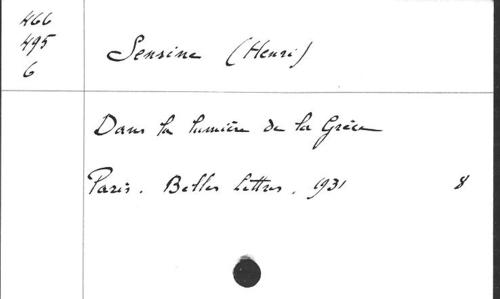 466
495
6
Sensine (Henri)
Dans la lumière de la Grèce
Paris. Belles Lettres. 1931 8